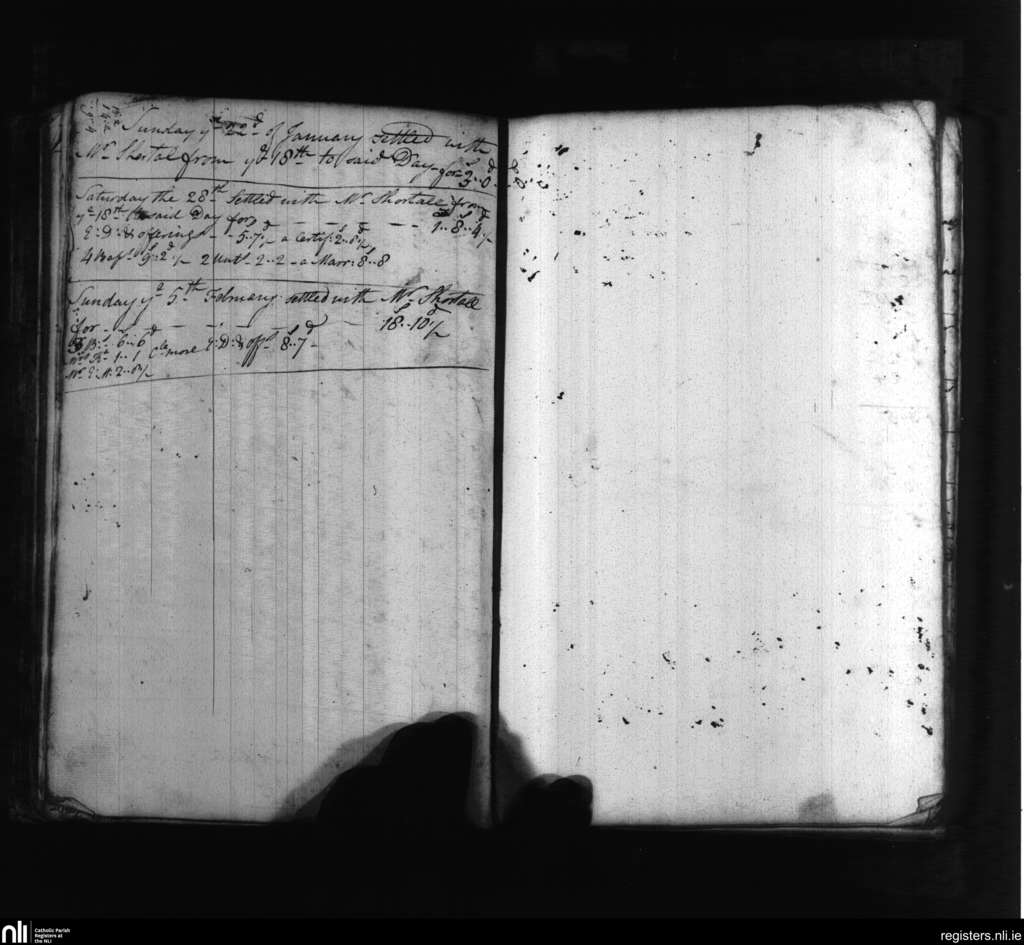 Sunday ye 22nd of January settled with
Mr Shortal from ye 18th to said Day for 5..0..0
Saturday the 28th Settled with Mr Shortall from
ye 18th to said Day for - - - - - - 1..8..4½
E:D: & offering - - 5..7½ a Certif: 2..8½
4 Bapts 9..2½ 2 Unts 2..2 - a Marr: 8..8
Sunday ye 5th February settled with Mr Shortall
for - - - - - - - 18..10½
3 B: 6..6
1..1 more E:D: & offgs 8..7 -
2..8½
nli
Catholic Parish
Registers at
the NLI
registers.nli.ie